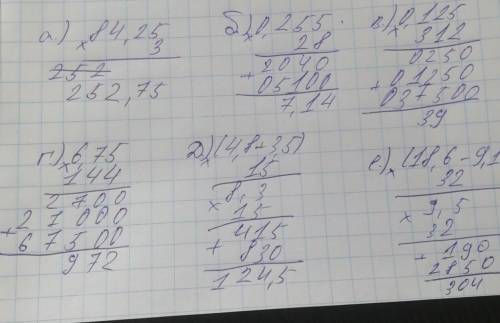 а) × 84,25
3
252
252,75
б) × 0,255
28
2040
+ 05100
7,14
в) × 0,125
312
0250
+ 01250
037500
39
г) × 6,75
144
2700
+ 27000
67500
972
д) × (4,8+3,5)
15
× 8,3
15
415
+ 830
124,5
е) × (18,6-9,1
32
× 9,5
32
+ 190
2850
304